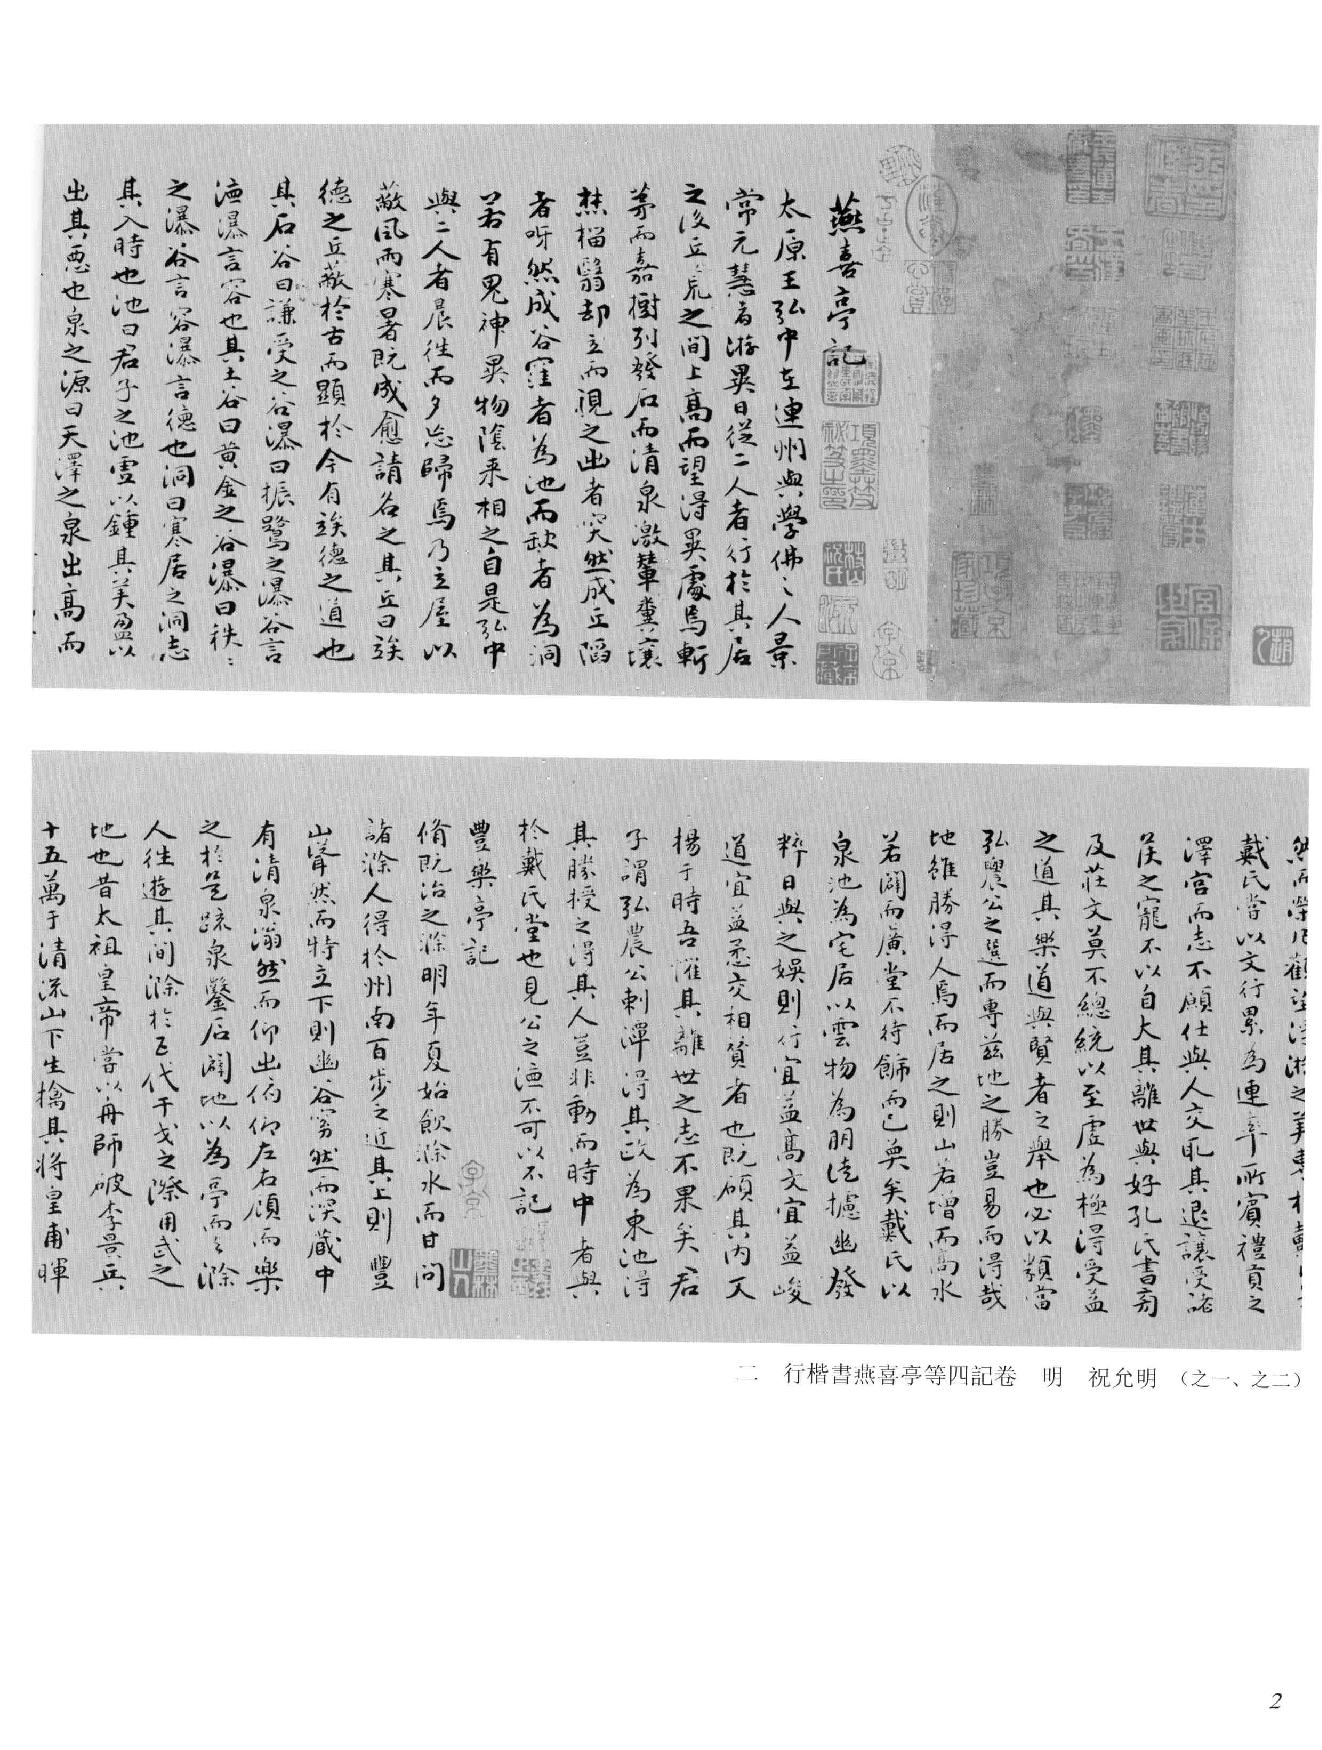 燕喜亭記
太原王弘中在連州與學佛之人景
常元慧者游異日從二人者行於其居
之後丘荒之間上高而望得異處焉斬
茅而嘉樹列發石而清泉激輦糞壤
椔翳却立而視之出者突然成丘陷
者呀然成谷窪者為池而缺者為洞
若有鬼神異物陰來相之自是弘中
與二人者晨往而夕忘歸焉乃立屋以
蔽風雨寒暑既成愈請名之其丘曰竢
德之丘蔽於古而顯於今有竢德之道也
其石谷曰謙受之谷瀑曰振鷺之瀑谷言
德瀑言容也其土谷曰黃金之谷瀑曰秩〻
之瀑谷言容瀑言德也洞曰寒居之洞志
其入時也池曰君子之池虛以鍾其美盈以
出其惡也泉之源曰天澤之泉出高而
戴氏嘗以文行累為連率所賓禮貢之
澤宮而志不願仕與人交取其退讓受諸
侯之寵不以自大其離世與好孔氏書旁
及莊文莫不總統以至虛為極得受益
之道其樂道與賢者之舉也必以類當
弘農公之選而專茲地之勝豈易而得哉
地雖勝得人焉而居之則山若增而高水
若闢而廣堂不待飾而已奐矣戴氏以
泉池為宅居以雲物為朋徒攄幽發
粹日與之娛則行宜益高文宜益峻
道宜益懋交相贊者也既碩其內又
揚于時吾懼其離世之志不果矣君
子謂弘農公刺潭得其政為東池得
其勝授之得其人豈非動而時中者與
於戴氏堂也見公之德不可以不記
豐樂亭記
脩既治之滁明年夏始飲滁水而甘問
諸滁人得於州南百步之近其上則豐
山聳然而特立下則幽谷窈然而深藏中
有清泉滃然而仰出俯仰左右顧而樂
之於是疏泉鑿石闢地以為亭而與滁
人往遊其間滁於五代干戈之際用武之
地也昔太祖皇帝嘗以舟師破李景兵
十五萬于清流山下生擒其將皇甫暉
二　行楷書燕喜亭等四記卷　明　祝允明（之一、之二）
2